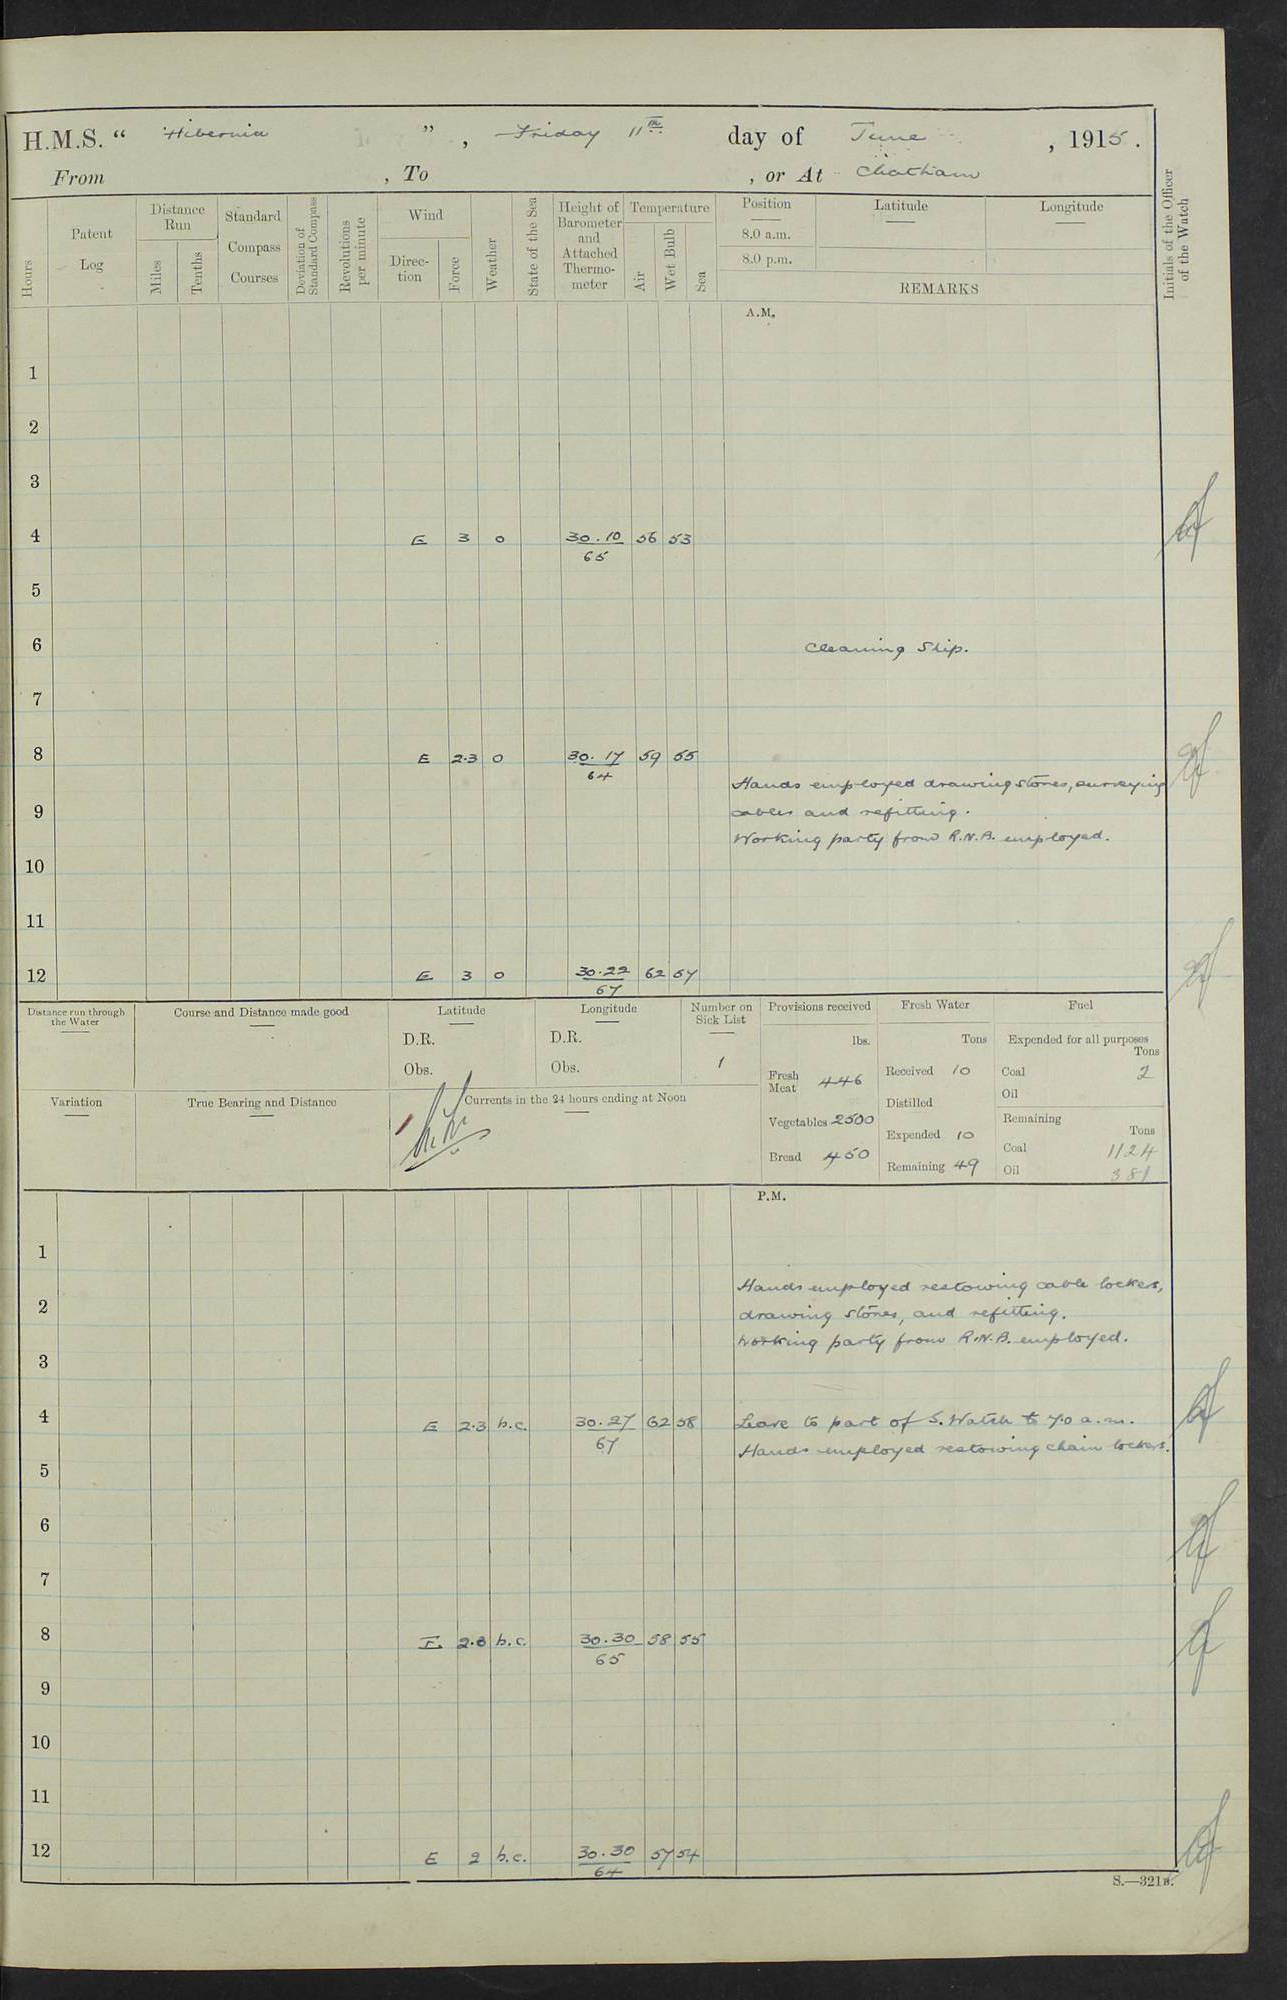 H.M.S. “ Hibernia ” , Friday 11th day of June , 1915 .
From , To , or At Chatham
Hours
Patent Log
Distance Run
Miles
Tenths
Standard Compass Courses
Deviation of Standard Compass
Revolutions per minute
Wind
Direction
Force
Weather
State of the Sea
Height of Barometer and Attached Thermometer
Temperature
Air
Wet Bulb
Sea
Position
8.0 a.m.
8.0 p.m.
Latitude
Longitude
REMARKS
Initials of the Officer of the Watch
A.M.
1
2
3
4 E 3 o 30.10 56 53
65
5
6 Cleaning Ship.
7
8 E 2.3 o 30.17 59 55
64
Hands employed drawing stores, surveying
9 cables and refitting.
Working party from R.N.B. employed.
10
11
12 E 3 o 30.22 62 57
67
Distance run through the Water
Course and Distance made good
Latitude
D.R.
Obs.
Longitude
D.R.
Obs.
Number on Sick List
1
Provisions received
lbs.
Fresh Meat 446
Vegetables 2500
Bread 450
Fresh Water
Tons
Received 10
Distilled
Expended 10
Remaining 49
Fuel
Expended for all purposes
Tons
Coal 2
Oil
Remaining
Tons
Coal 1124
Oil 381
Variation
True Bearing and Distance
Currents in the 24 hours ending at Noon
P.M.
1
Hands employed restowing cable lockers,
2 drawing stores, and refitting.
Working party from R.N.B. employed.
3
4 E 2.3 b.c. 30.27 62 58 Leave to part of S. Watch to 7.0 a.m.
67
Hands employed restowing chain lockers.
5
6
7
8 E 2.3 b.c. 30.30 58 55
65
9
10
11
12 E 2 b.c. 30.30 57 54
64
S.—321B.